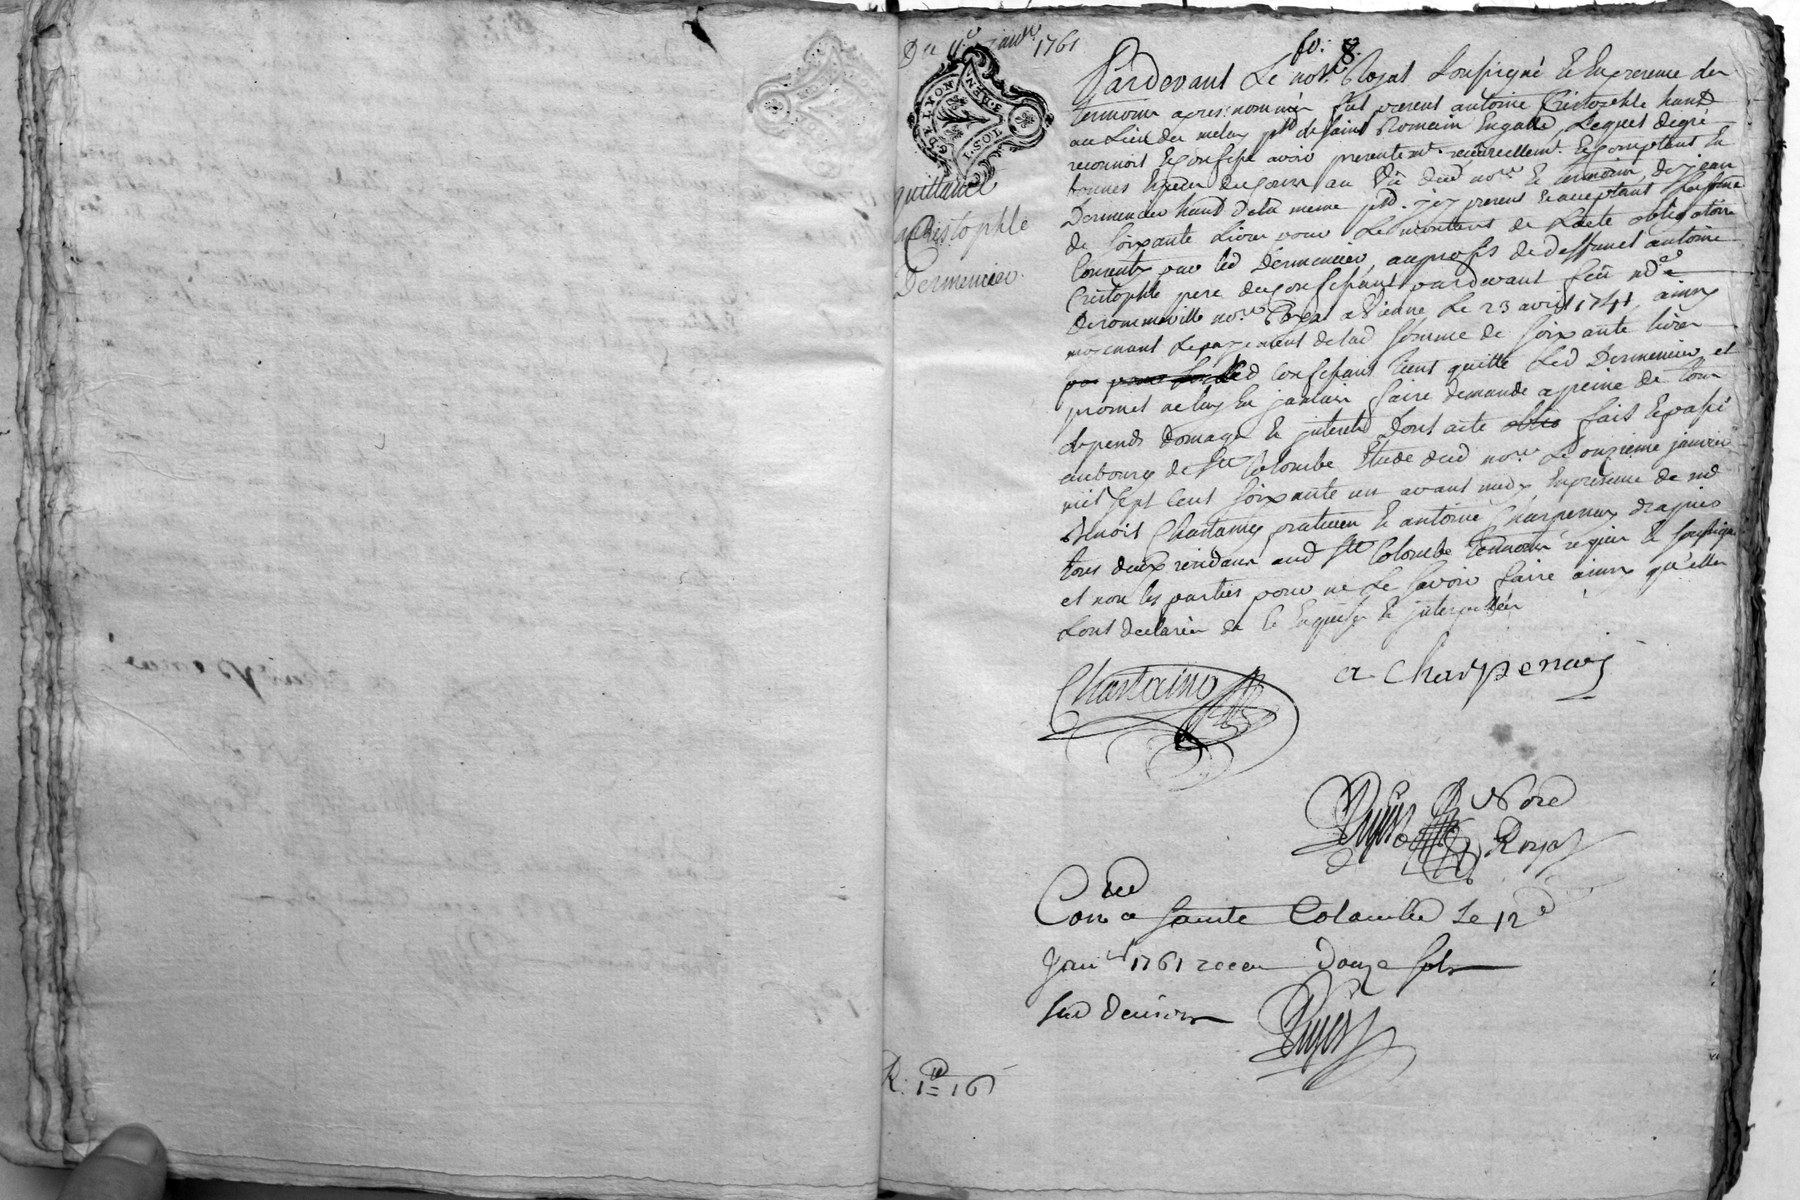 Du 11e janv. 1761
fo. 8.
G. DE LYON
3. DEN
1 SOL
quittance
Cristophle
Dermenier.
Pardevant Le nore. Royal soussigné Et En presence des
temoins apres nommés fut present antoine Cristophle habt
au Lieu du melay psse de saint Romain Engalle, Lequel de gré
reconnoit & confesse avoir presentemt. reellemt. & comptant En
bonnes Especes de cours au Vû dud nore. & temoins, de jean
Dermenier habt dela meme psse. icy present & acceptant La somme
de soixante Livres pour Le montant de L'acte obligatoire
Consenty par led Dermenier, au profit de deffunct antoine
Cristophle pere du confessant pardevant feû me
Derommeville nore. Royal a Vienne Le 23 avril 1741, ainsy
moienant Le payement de lad somme de soixante livres
Led confessant tient quitte Led Dermenier et
promet ne luy En jamais faire demande a peine de tous
depends domages & interets Dont acte fait & passé
au bourg de Ste Colombe Etude dud nore. Le onzieme janvier
mil sept cent soixante un avant midy En presence de me
Benoit Chastaing praticien & antoine Charpenay
tous deux residans aud Ste Colombe temoins requis & soussignés
et non les parties pour ne Le savoir faire ainsy qu'elles
L'ont declarées de ce Enquises & interpellées
Chastaing
a Charpenay
Nore
Royal
Conlé a sainte Colombe Le 12e
Janer 1761 receu Douze sols
R: 1re 16